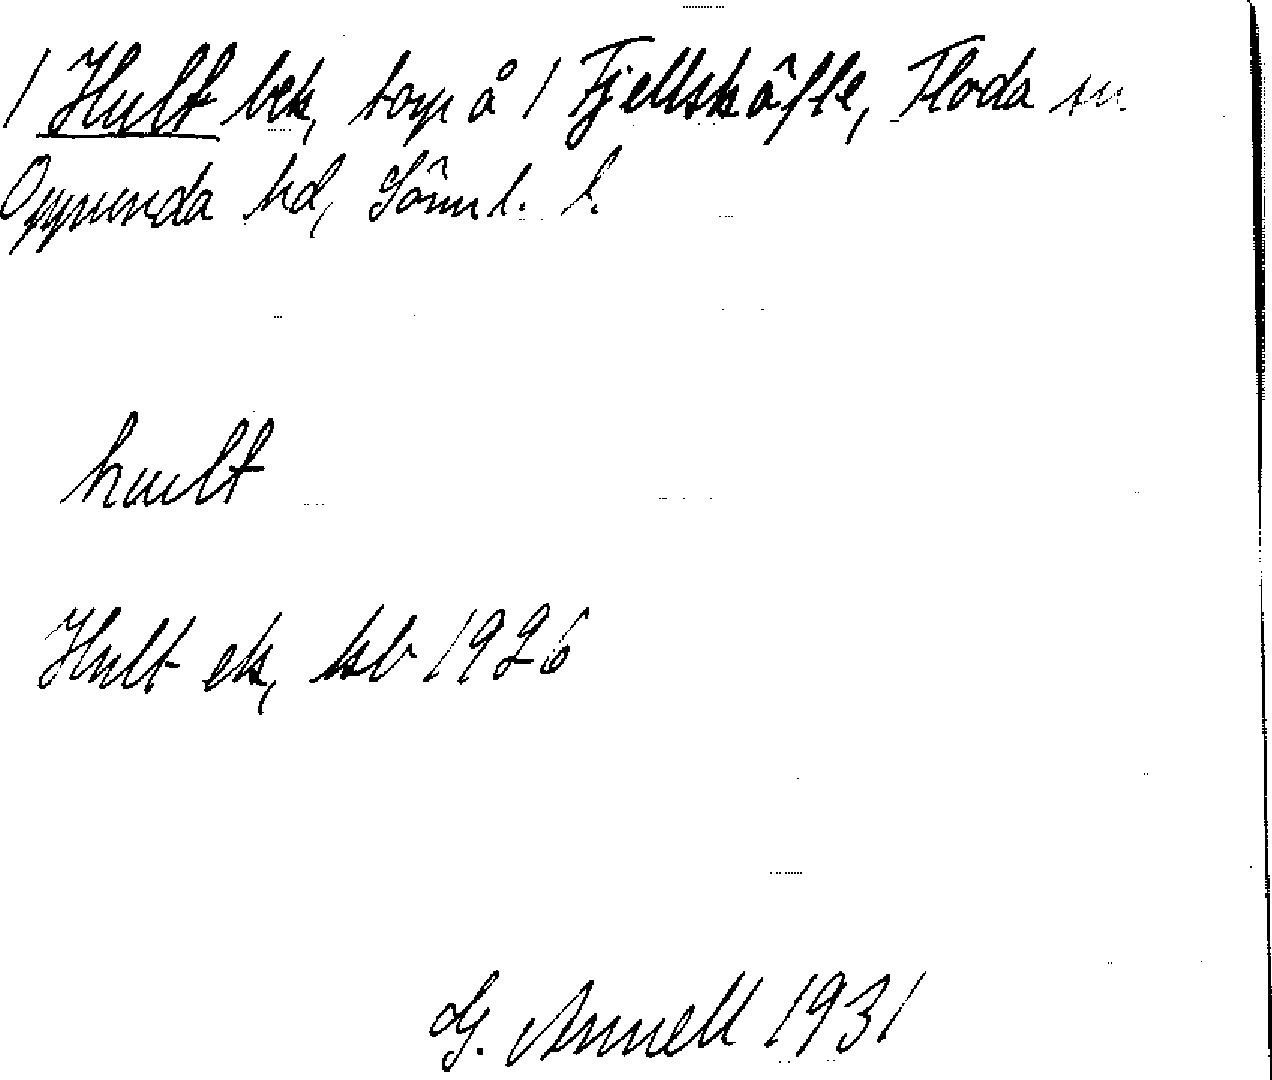 1 Hult bek, torp å 1 Fjellskäfte, Floda sn.
Oppunda hd, Sörml. l.
hult
Hult ek, kb 1926
G. Annell 1931